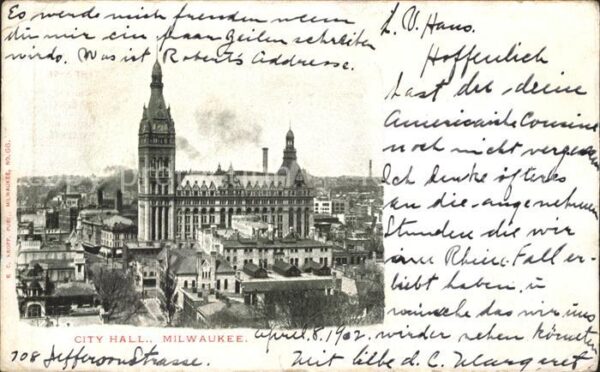 Es werde mich freuden wenn
du mir ein paar Zeilen schreiben
wirds. Was ist Roberts Addresse.
L. V. Hans.
Hoffenlich
hast du deine
Americanishe Cousine
noch nicht vergessen
Ich denke öfteres
an die angenehmen
Stunden die wir
am Rhein Fall er-
liebt haben, u
wünsche das wir uns
wirder sehen könnten
Mit liebe d. C. Margaret
April. 8. 1902.
708 Jefferson Strasse.
CITY HALL., MILWAUKEE.
E. C. KROPP, PUBL., MILWAUKEE, NO.